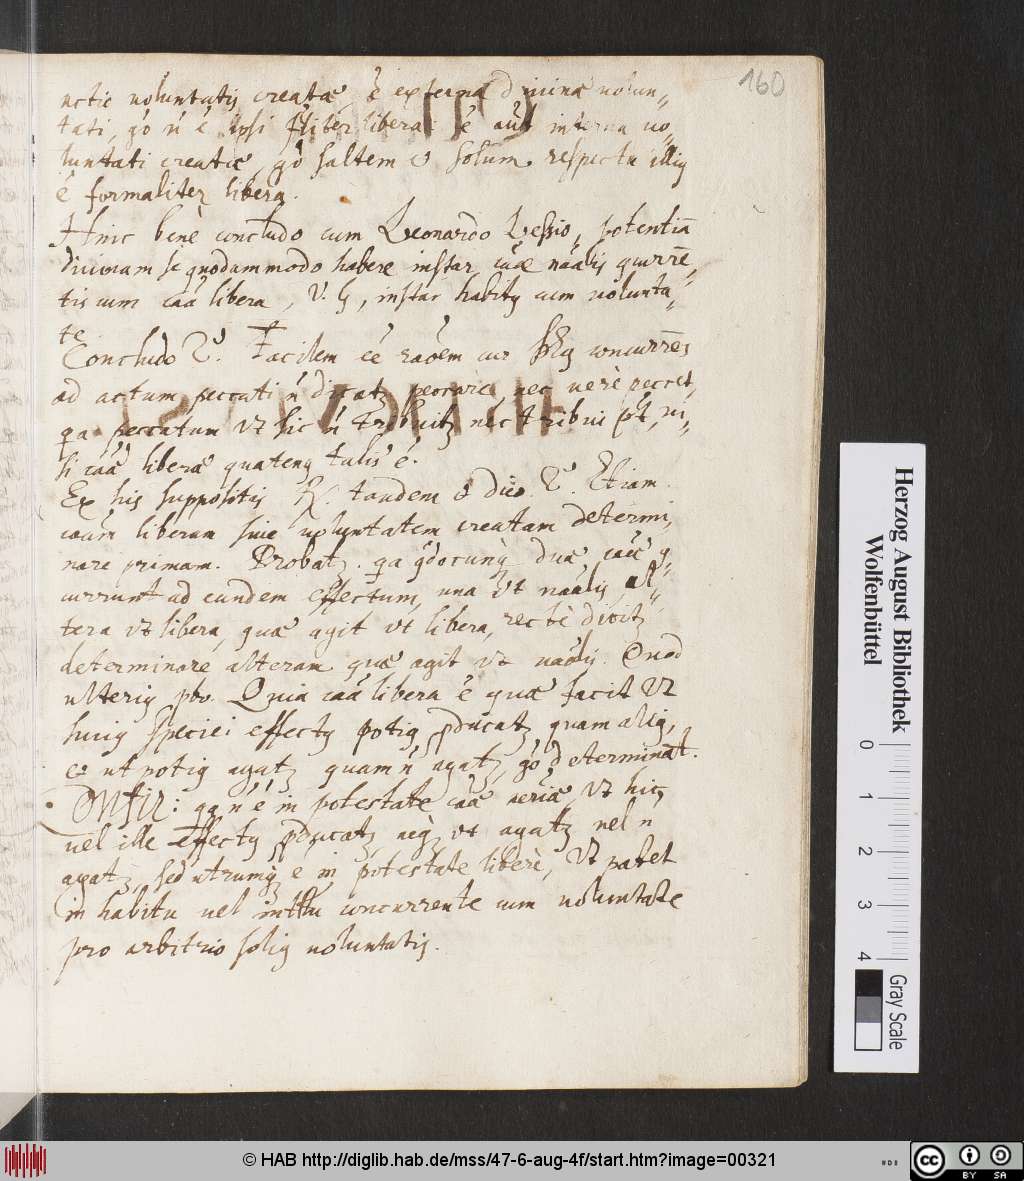 160
actio voluntatis creatæ, è externa divinæ volun„
tati, gò ń é ipsi ffliter libera: é aūt interna vo„
luntati creatæ, gò saltem & solum respectu illiq
é formaliter libera.
Hinc benè concludo cum Leonardo Lessio, potentiā
divinam se quodammodo habere instar cāæ nāalis qcurrē„
tis cum cāā libera, V. G, instar habitq cum volunta„
te
Concludo Facilem éé rāoem cur concurrēs
ad actum peccati ń dicatz peccare, nec verè peccet,
qa peccatum vt sic ń tribuitz nec tribui pōt, ni„
si cāā libera quatenq talis é.
Ex his suppositis R. tandem & dico. Etiam
cāām liberam sive voluntatem creatam determi„
nare primam. Probatz. qa qdocunq duæ cāæ q„
currunt ad eundem effectum, una vt nāalis, al„
tera vt libera, quæ agit vt libera, rectè dicitz
determinare alteram quæ agit vt nāalis. Quod
ulteriq pbo. Quia cāā libera é quæ facit vt
huiq speciei effectq potiq pducatz quam aliq,
et ut potiq agatz quam ń agatz, gò determināt.
Confir: qa ń é in potestate cāæ nēriæ vt hic,
vel ille effectq pducatz, neq vt agatz vel ń
agatz, sed utrumq é in potestate liberè, Vt patet
in habitu vel concurrente cum voluntate
pro arbitrio soliq voluntatis.
Herzog August Bibliothek
Wolfenbüttel
0 1 2 3 4
Gray Scale
© HAB http://diglib.hab.de/mss/47-6-aug-4f/start.htm?image=00321
cc BY SA